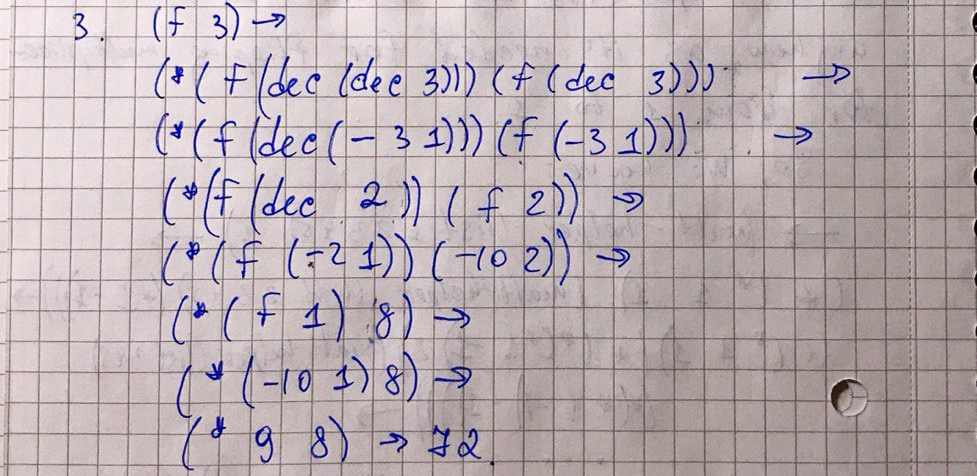 3. (f 3) →
(* (f (dec (dec 3))) (f (dec 3))) →
(* (f (dec (- 3 1))) (f (-3 1))) →
(* (f (dec 2)) (f 2)) →
(* (f (-2 1)) (-10 2)) →
(* (f 1) 8) →
(* (-10 1) 8) →
(* 9 8) → 72.